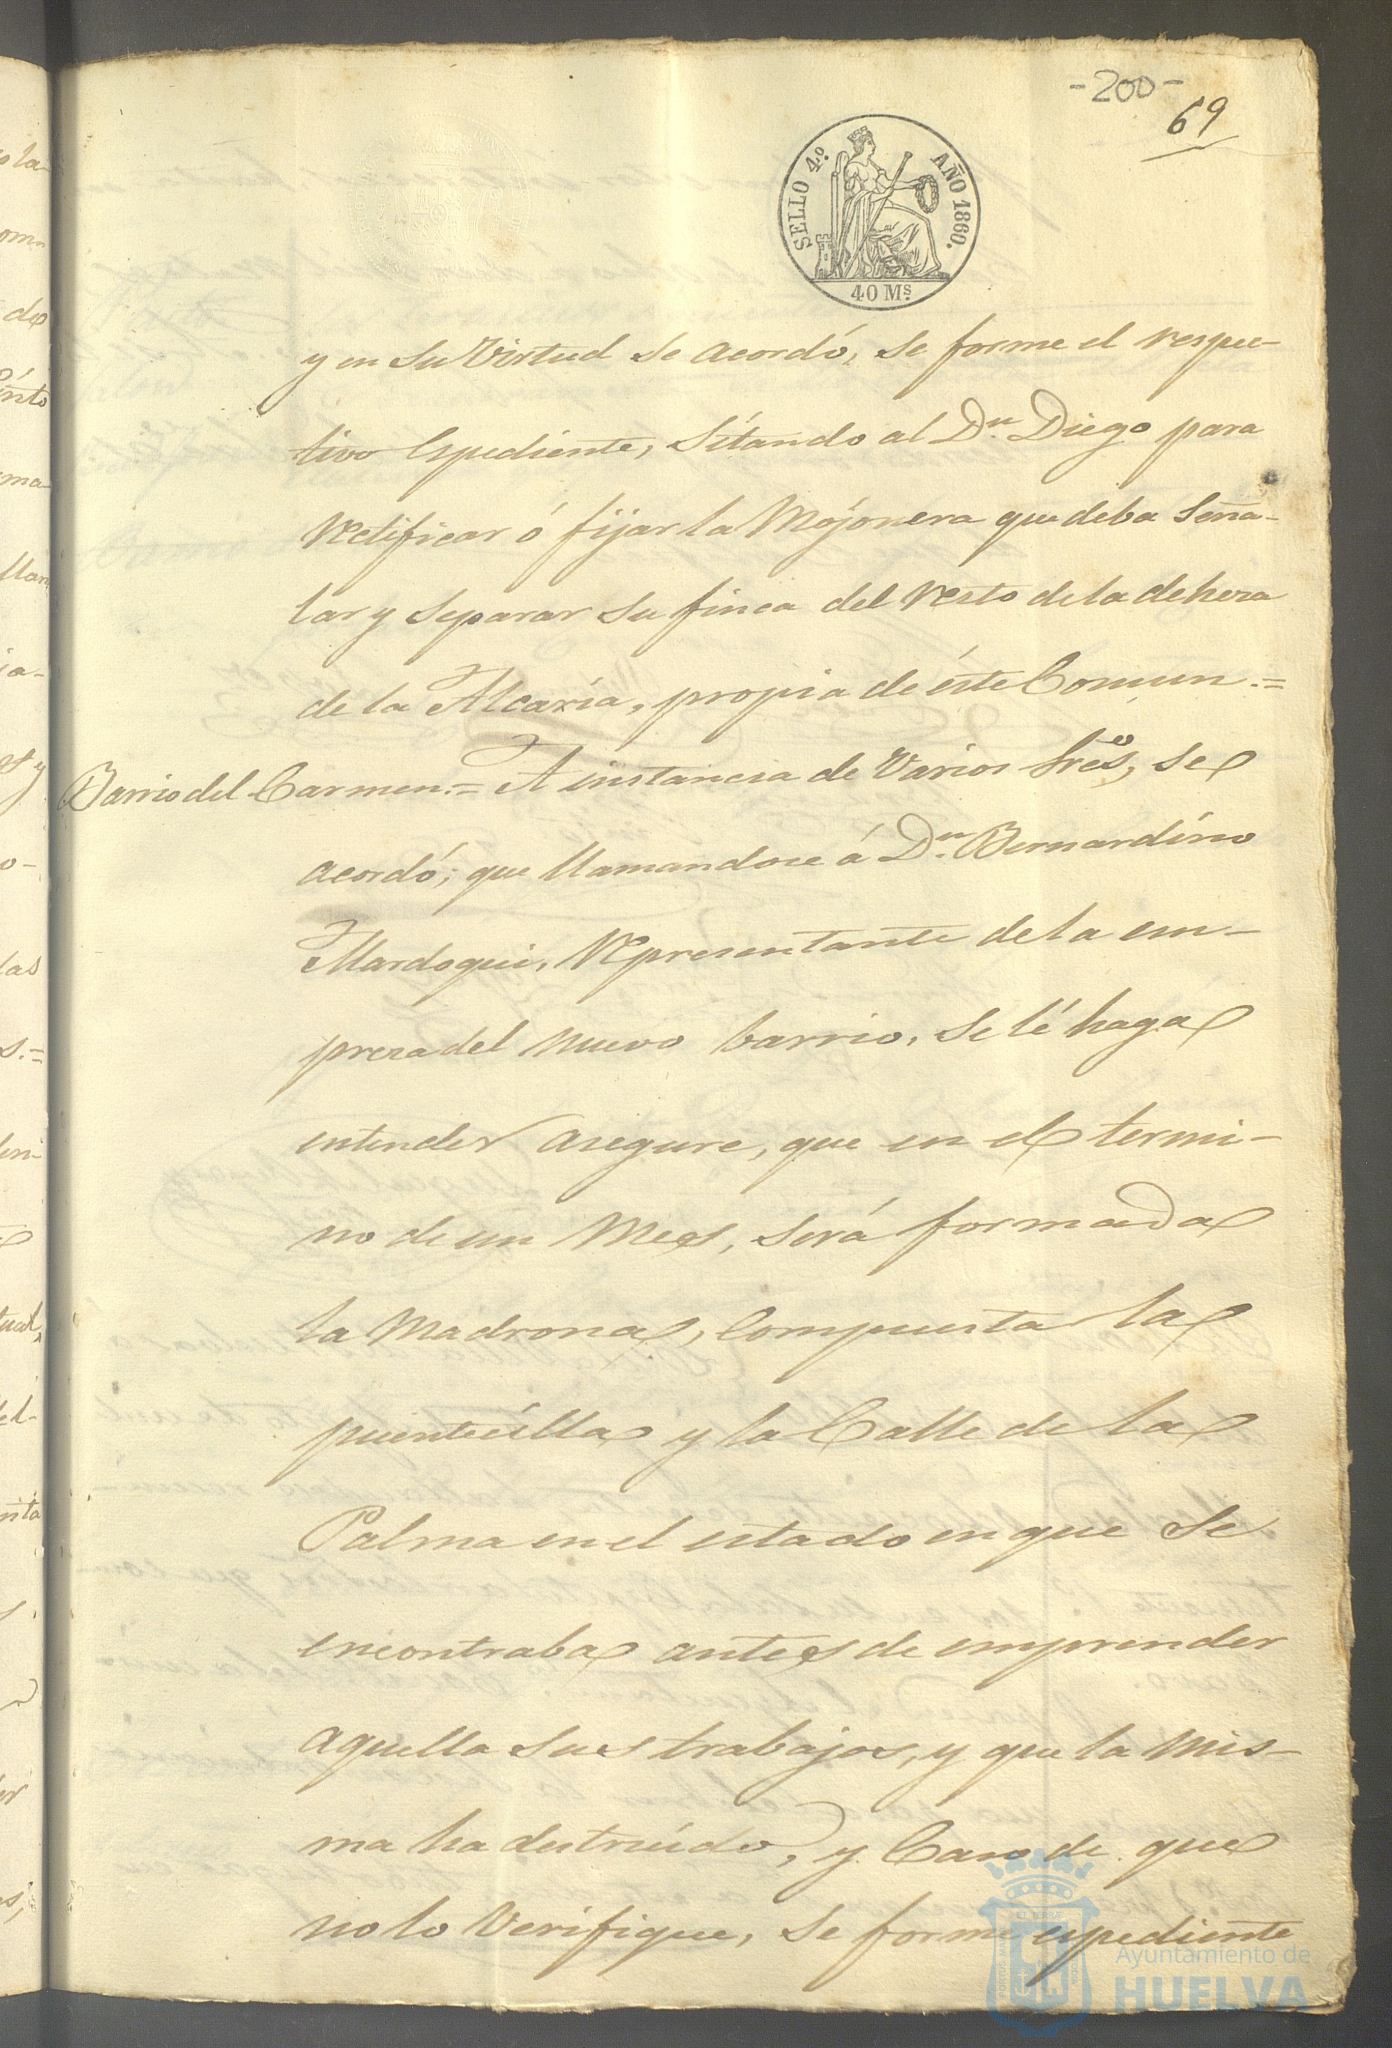 -200-
69
SELLO 4.º AÑO 1860.
40 Ms.
y en su Virtud se acordó, se forme el respec-
tivo Espediente, Sitando al Dn. Diego para
Retificar ó fijar la Mojonera que deba Seña-
lar y Separar su finca del Resto de la deheza
de la Alcaria, propia de éste Comun.=
Barrio del Carmen.= A instancia de Varios Sres, se
acordó; que llamandose á Dn. Bernardino
Mardoqui, Representante de la em-
preza del nuevo barrio, se lé haga
entender asegure, que en el termi-
no de un Mes, será formada
la Madrona, Compuesta la
puentecilla y la Calle de la
Palma en el estado en que se
encontraba antes de emprender
aquella sus trabajos, y que la mis-
ma ha destruido, y Caso de que
no lo Verifique, se forme espediente
Ayuntamiento de
HUELVA